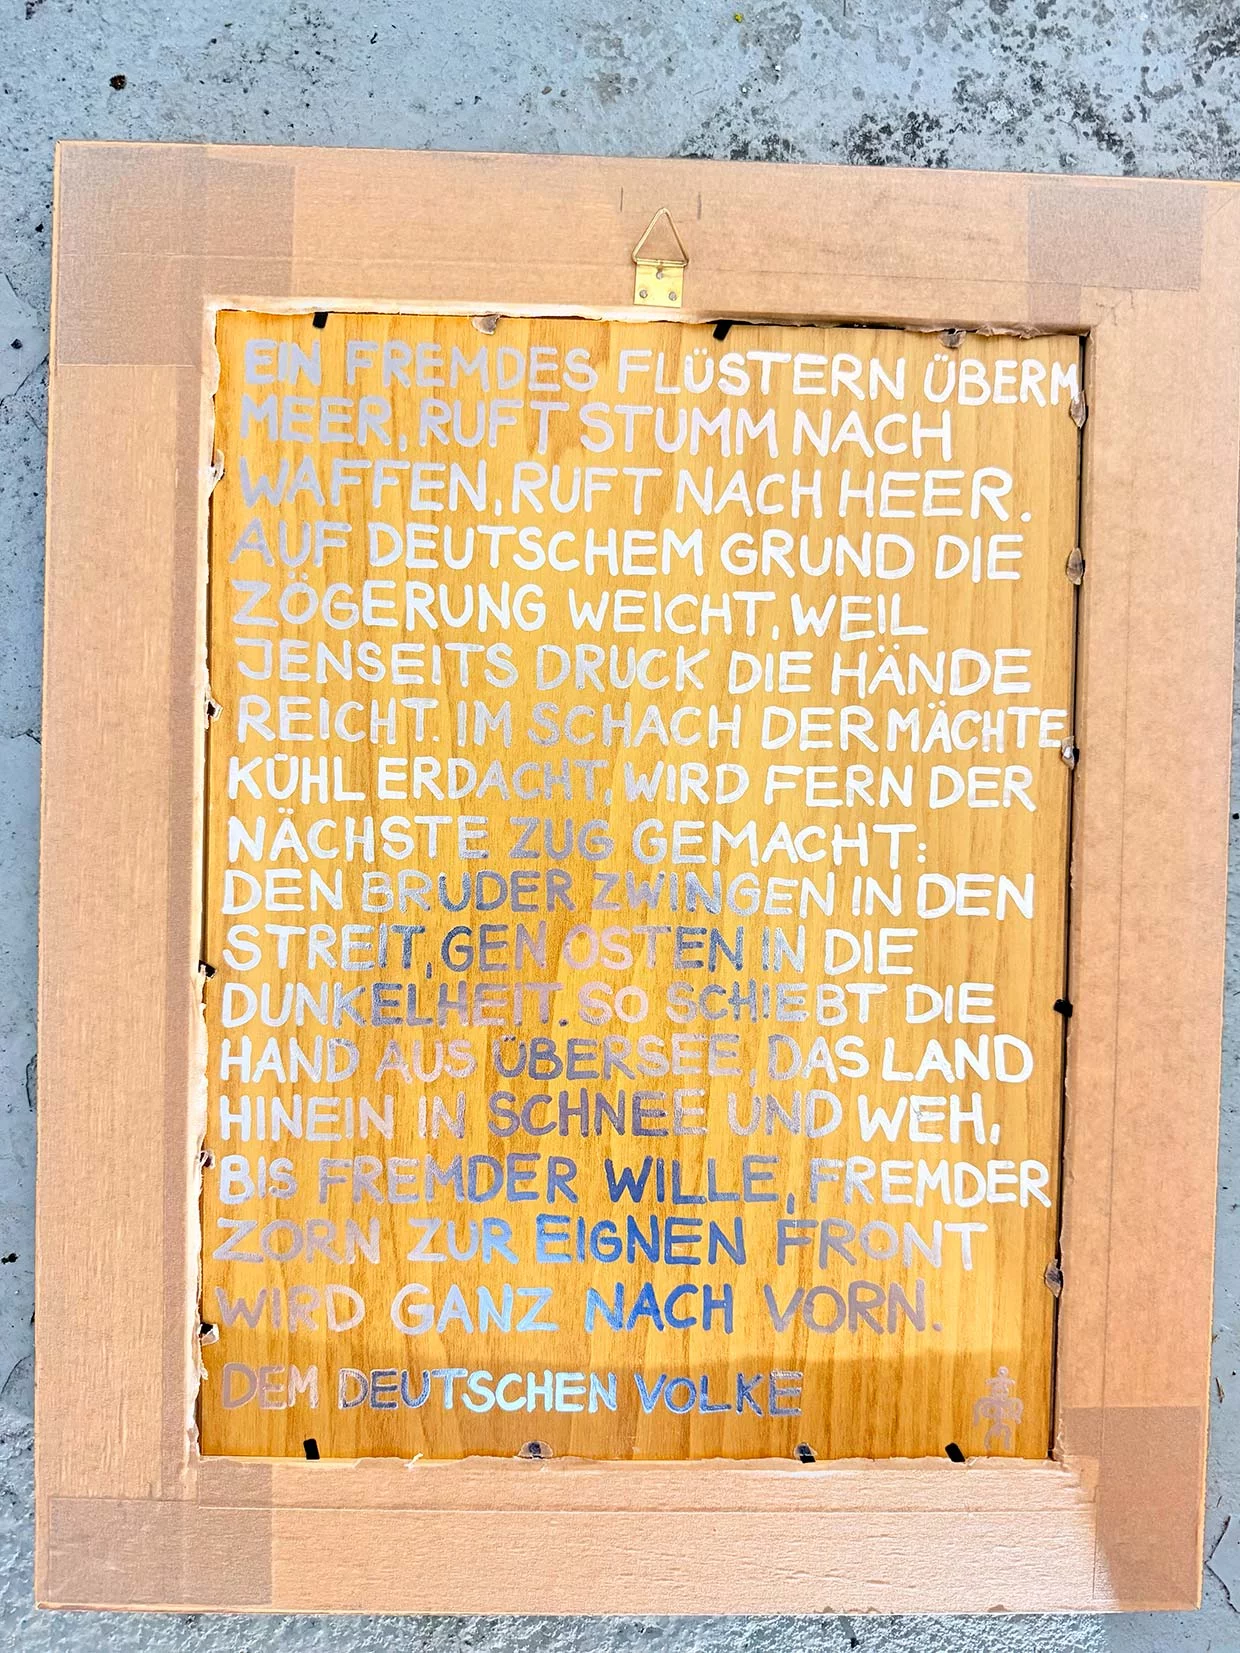 EIN FREMDES FLÜSTERN ÜBERM
MEER, RUFT STUMM NACH
WAFFEN, RUFT NACH HEER.
AUF DEUTSCHEM GRUND DIE
ZÖGERUNG WEICHT, WEIL
JENSEITS DRUCK DIE HÄNDE
REICHT. IM SCHACH DER MÄCHTE,
KÜHL ERDACHT, WIRD FERN DER
NÄCHSTE ZUG GEMACHT:
DEN BRUDER ZWINGEN IN DEN
STREIT, GEN OSTEN IN DIE
DUNKELHEIT. SO SCHIEBT DIE
HAND AUS ÜBERSEE, DAS LAND
HINEIN IN SCHNEE UND WEH,
BIS FREMDER WILLE, FREMDER
ZORN ZUR EIGNEN FRONT
WIRD GANZ NACH VORN.
DEM DEUTSCHEN VOLKE